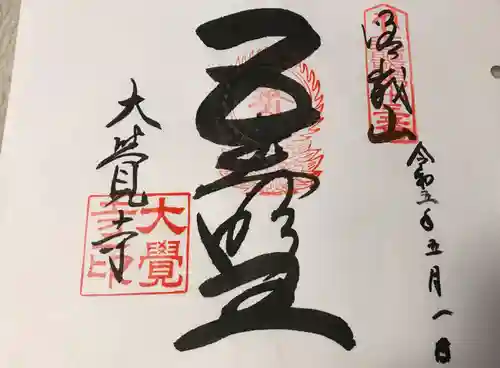 嵯峨山
令和五年五月一日
五大明王
大覺寺
大覺
寺印